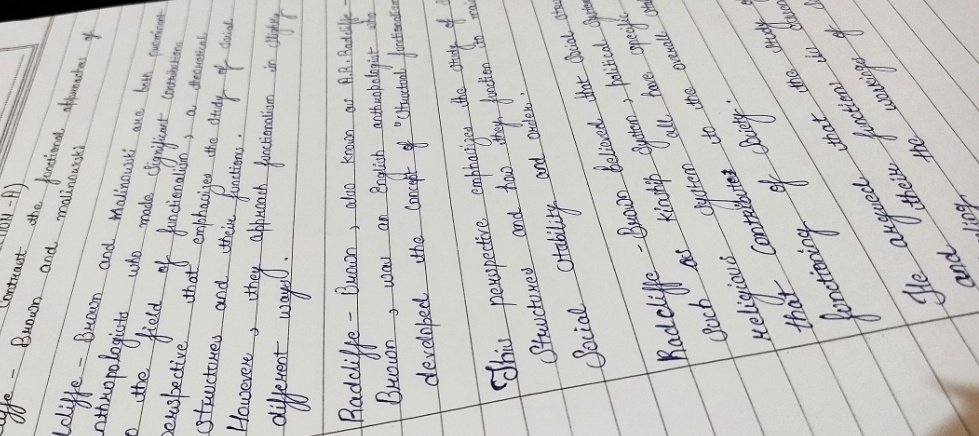 SECTION - A)
Contrast the functional approaches of
Radcliffe - Brown and malinowski
Radcliffe - Brown and Malinowski are both prominent
anthropologists who made significant contributions
to the field of functionalism, a theoretical
perspective that emphasizes the study of social
structures and their functions.
However, they approach functionalism in slightly
different ways.
Radcliffe - Brown, also known as A.R. Radcliffe -
Brown, was an English anthropologist who
developed the concept of "structural functionalism
This perspective emphasizes the study of
Structures and how they function to
Social stability and order.
Radcliffe - Brown believed that social
such as kinship system, political system
religious system all have specific
that contributes to the overall
functioning of society.
He argued that the study of
their function is
and the workings of